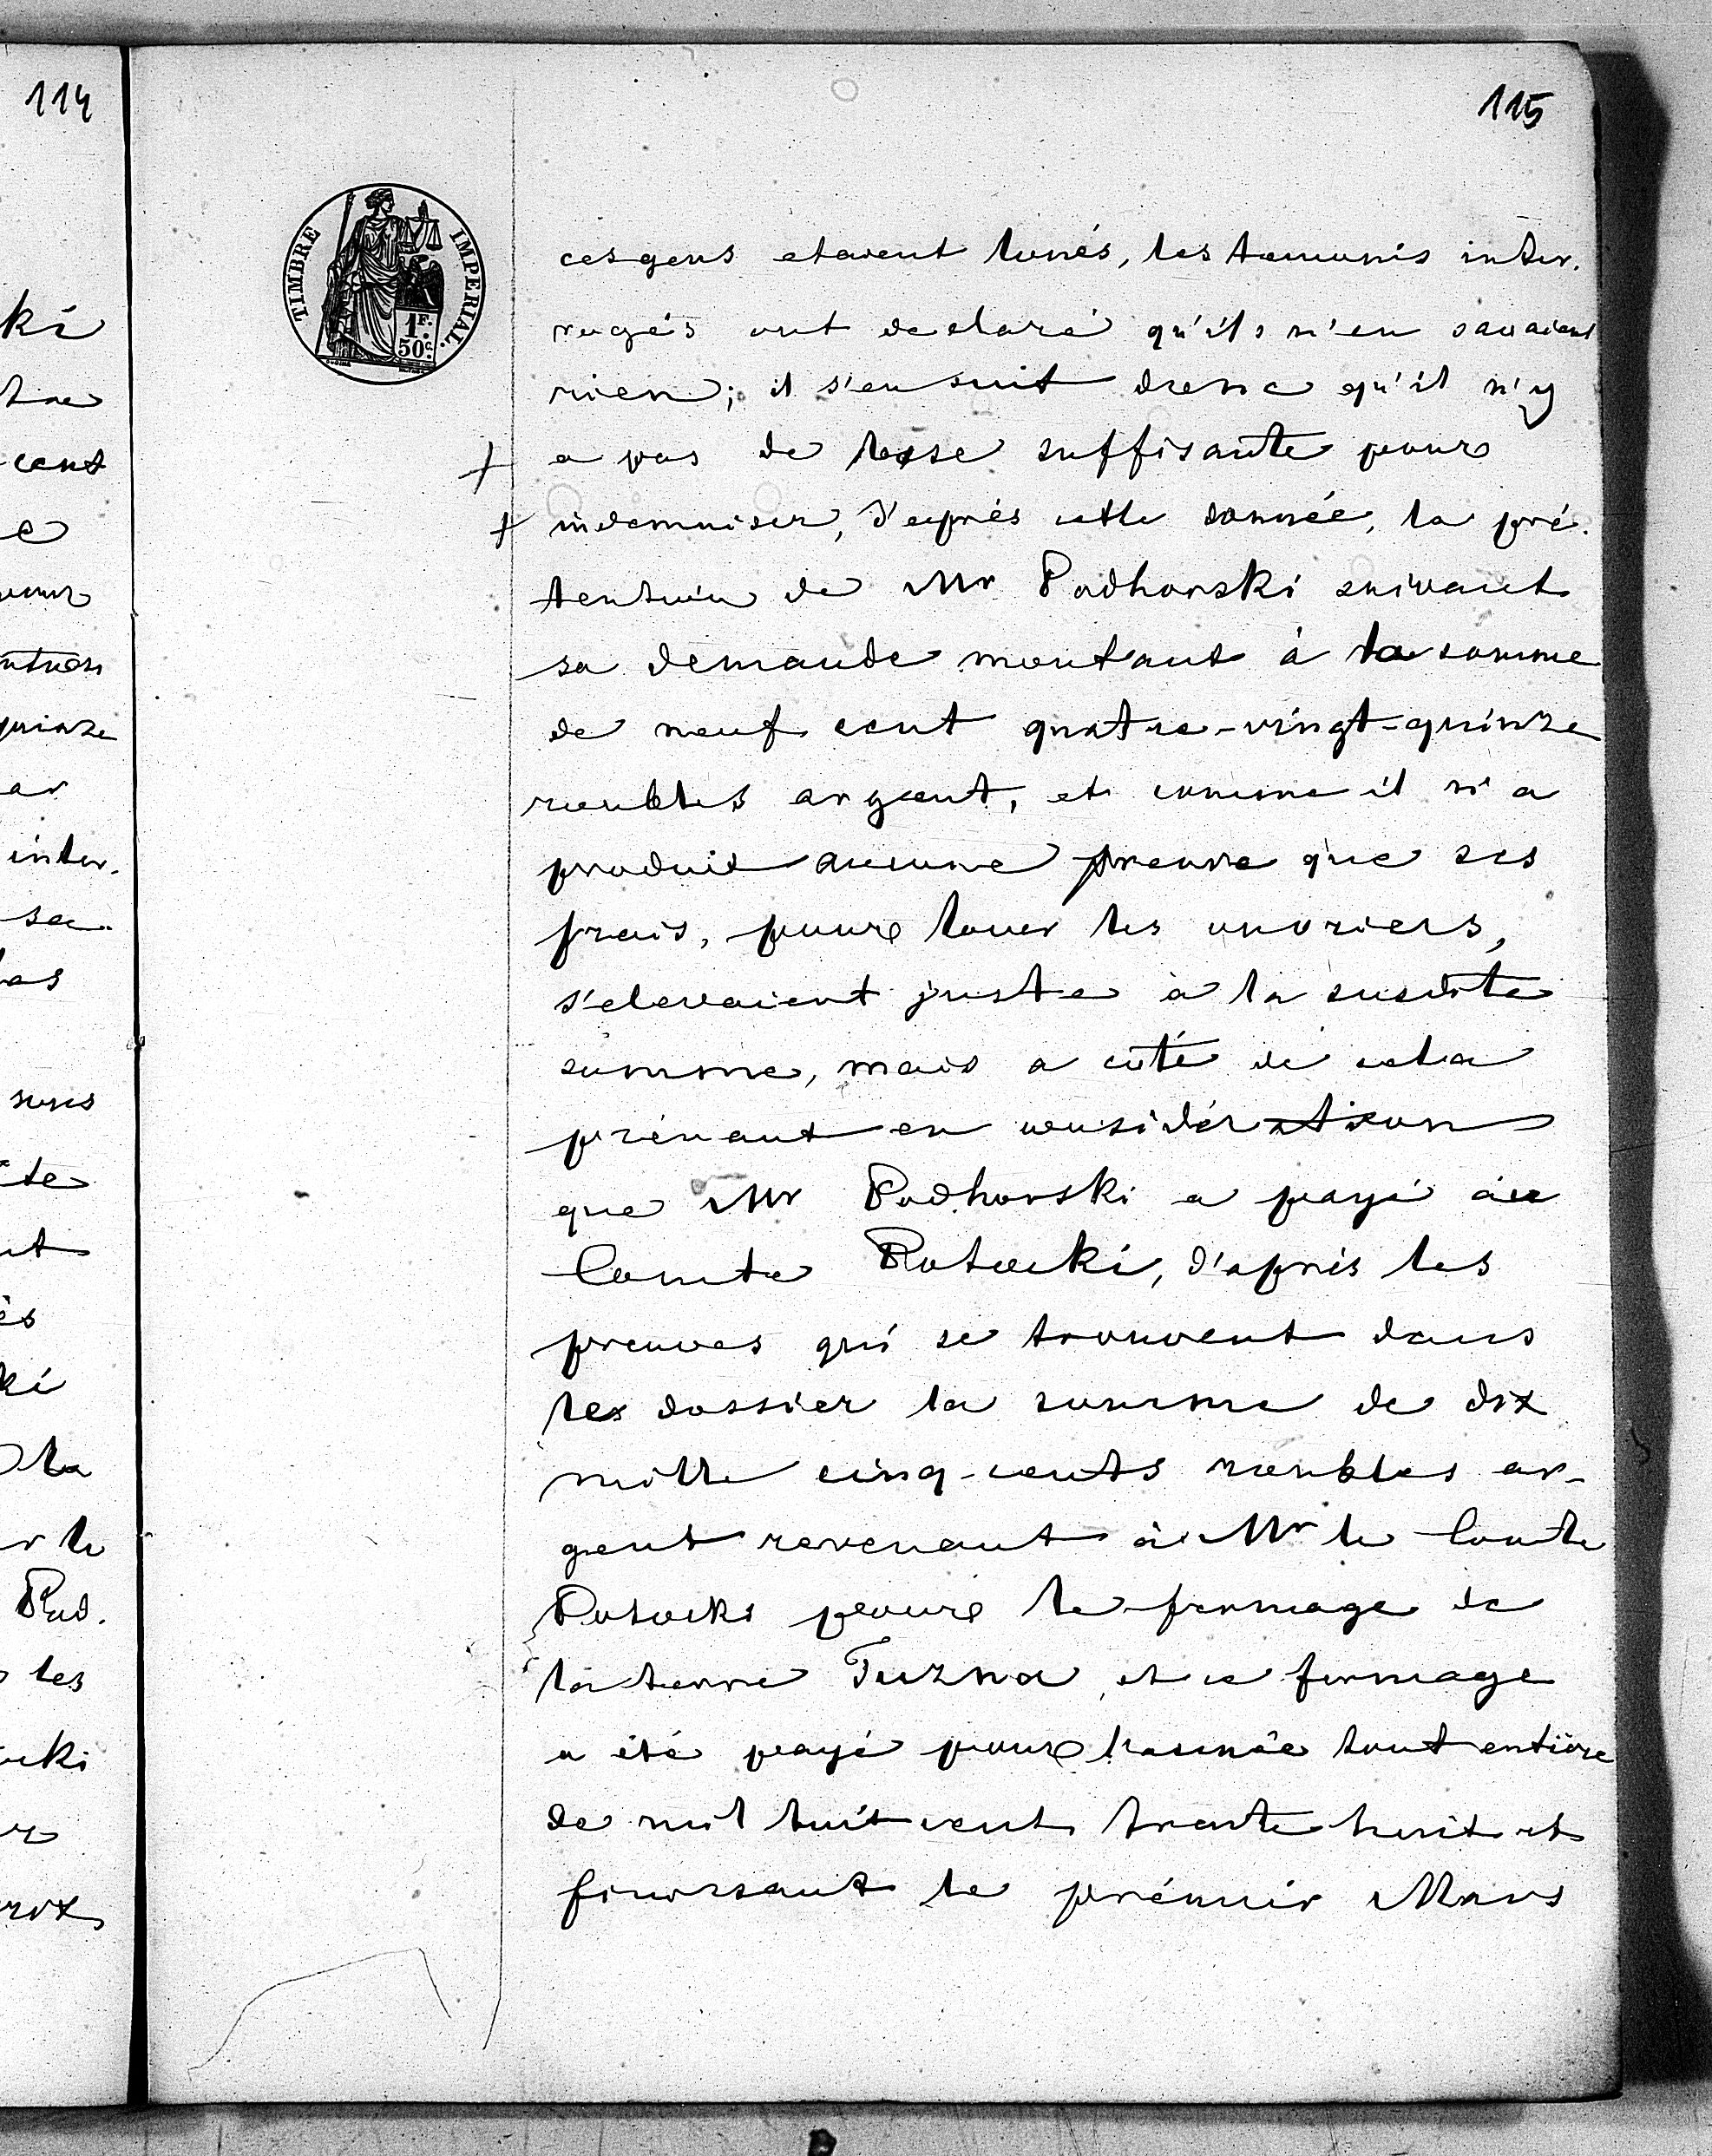 114
115
TIMBRE IMPERIAL.
1F.
50c.
ces gens etaient loués, les temoins inter.
rogés ont declaré qu'ils n'en savaient
rien; il s'en suit donc qu'il n'y
a pas de base suffisante pour
indemniser, d'après cette donnée, la pré.
tention de Mr Podhorski suivant
sa demande montant à la somme
de neuf cent quatre-vingt-quinze
roubles argent, et comme il n'a
produit aucune preuve que ses
frais, pour louer les ouvriers,
s'elevaient juste à la susdite
somme, mais a côté de cela
prénant en considération
que Mr Podhorski a payé au
Comte Potocki, d'après les
preuves qui se trouvent dans
les dossier la somme de dix
mille cinq-cents roubles ar-
gent revenant à Mr le Comte
Potocki pour le fermage de
la terre Tuzna, et ce fermage
a été payé pour l'année tout entière
de mil huit cent trente huit et
finissant le prémier Mars
ki
cent
e
quinze
ar
inter.
sa
las
te
nt
és
ki
la
r le
Pod.
les
cki